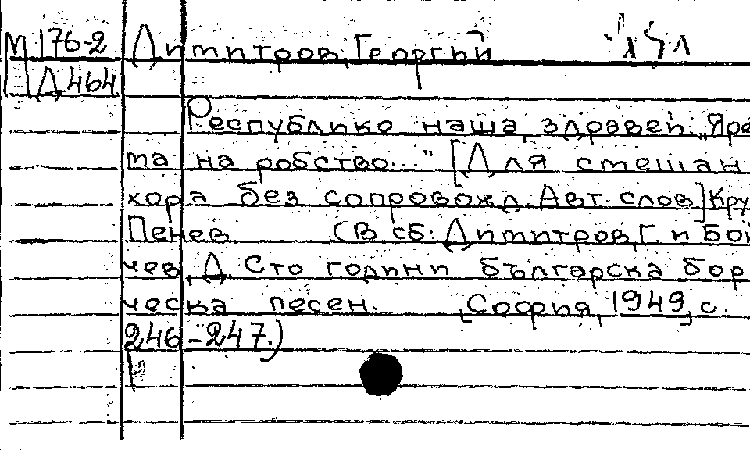 М 176-2 Димитров, Георгий
Д 464
Республико наша, здравей! „Яре
та на робство..." [Для смешан
хора без сопровожд. Авт. слов] Кру
Пенев. (В сб: Димитров, Г. и Бой
чев, Д. Сто години българска бор
ческа песен. [София, 1949, с.
246-247.)